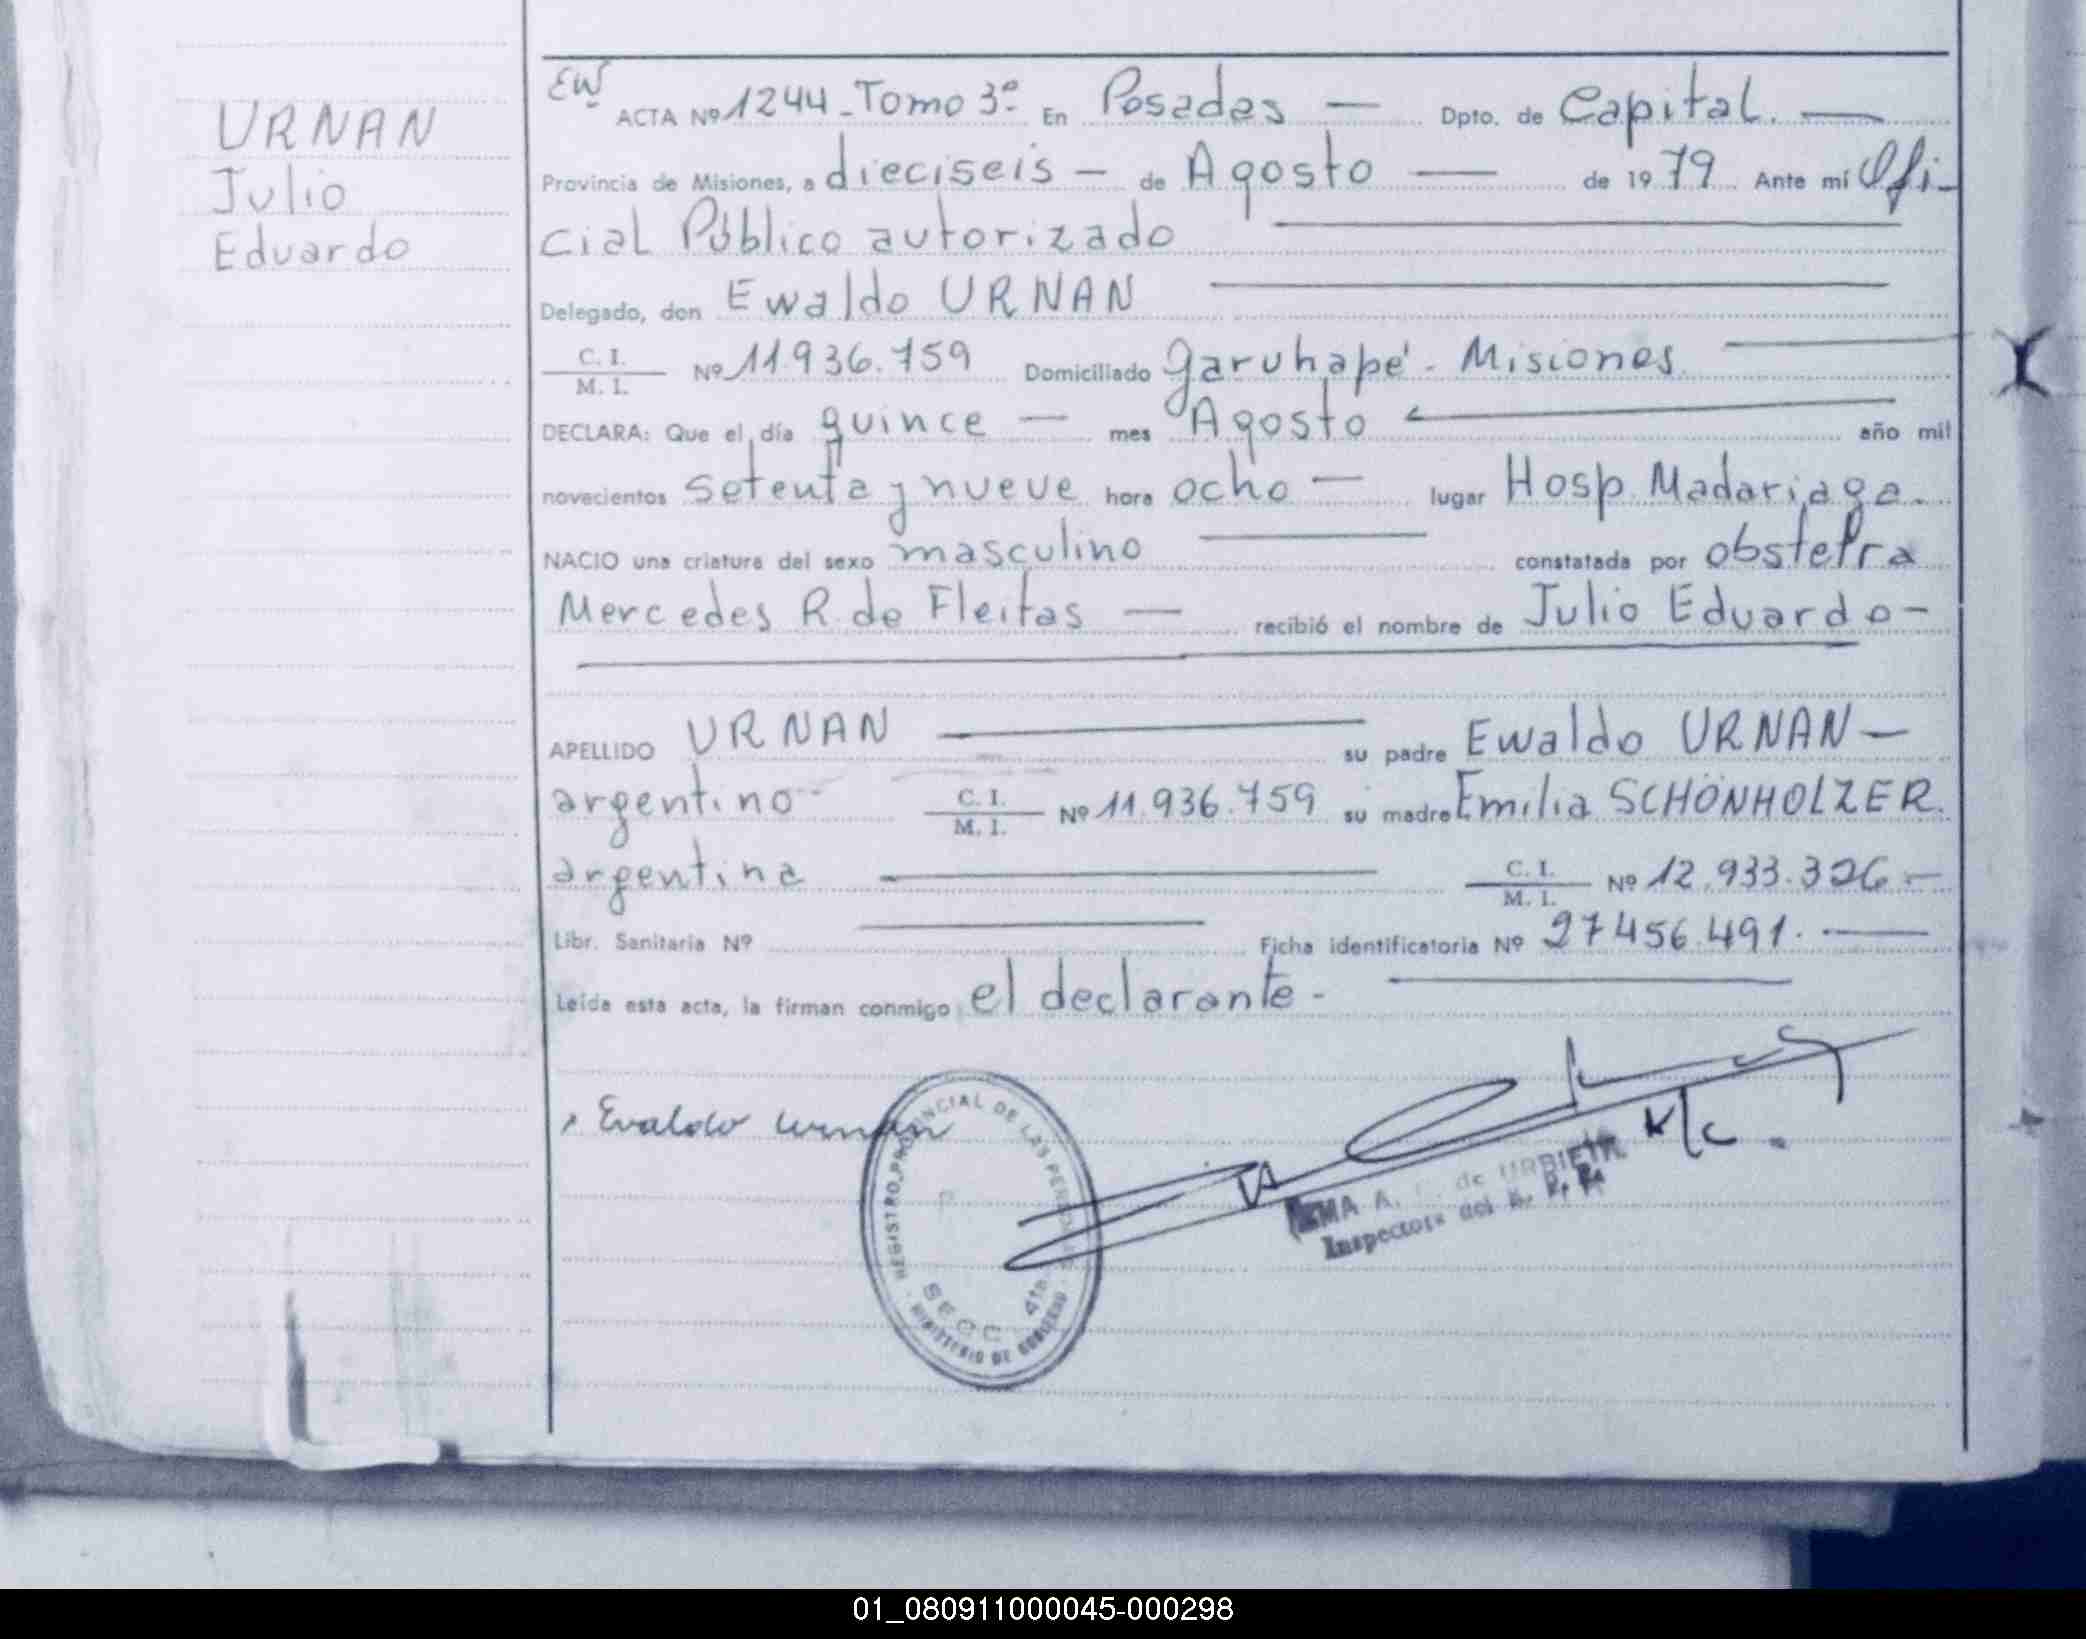 URNAN
Julio
Eduardo
EW
ACTA Nº 1244 - Tomo 3º En Posadas — Dpto. de Capital. —
Provincia de Misiones, a dieciseis — de Agosto — de 1979 Ante mí Ofi-
cial Público autorizado
Delegado, don Ewaldo URNAN
C. I. / M. I. Nº 11.936.759 Domiciliado Garuhapé - Misiones
DECLARA: Que el día quince — mes Agosto año mil
novecientos setenta y nueve hora ocho — lugar Hosp. Madariaga.
NACIO una criatura del sexo masculino — constatada por obstetra
Mercedes R. de Fleitas — recibió el nombre de Julio Eduardo -
APELLIDO URNAN — su padre Ewaldo URNAN —
argentino - C. I. / M. I. Nº 11.936.759 su madre Emilia SCHÖNHOLZER.
argentina — C. I. / M. I. Nº 12.933.326.-
Libr. Sanitaria Nº — Ficha identificatoria Nº 27456.491. —
Leída esta acta, la firman conmigo el declarante -
Evaldo Urnan
REGISTRO PROVINCIAL DE LAS PERSONAS
SECC. 4ta
MINISTERIO DE GOBIERNO
A. de URBIETA
Inspectora del R. P. P.
01_080911000045-000298